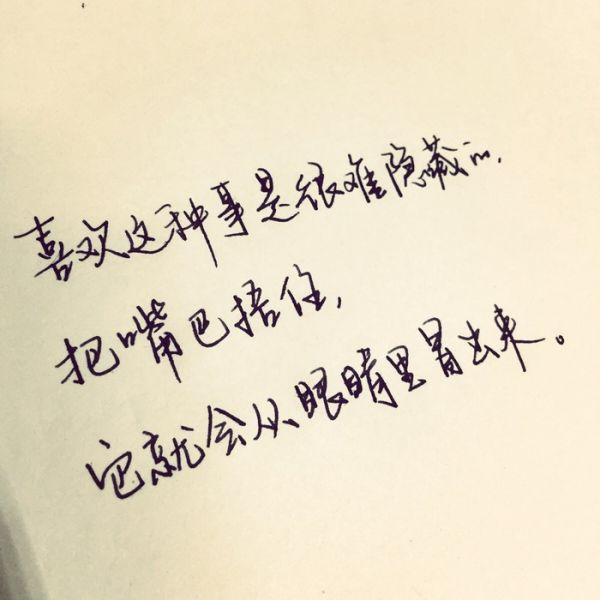 喜欢这种事是很难隐藏的,
把嘴巴捂住,
它就会从眼睛里冒出来。